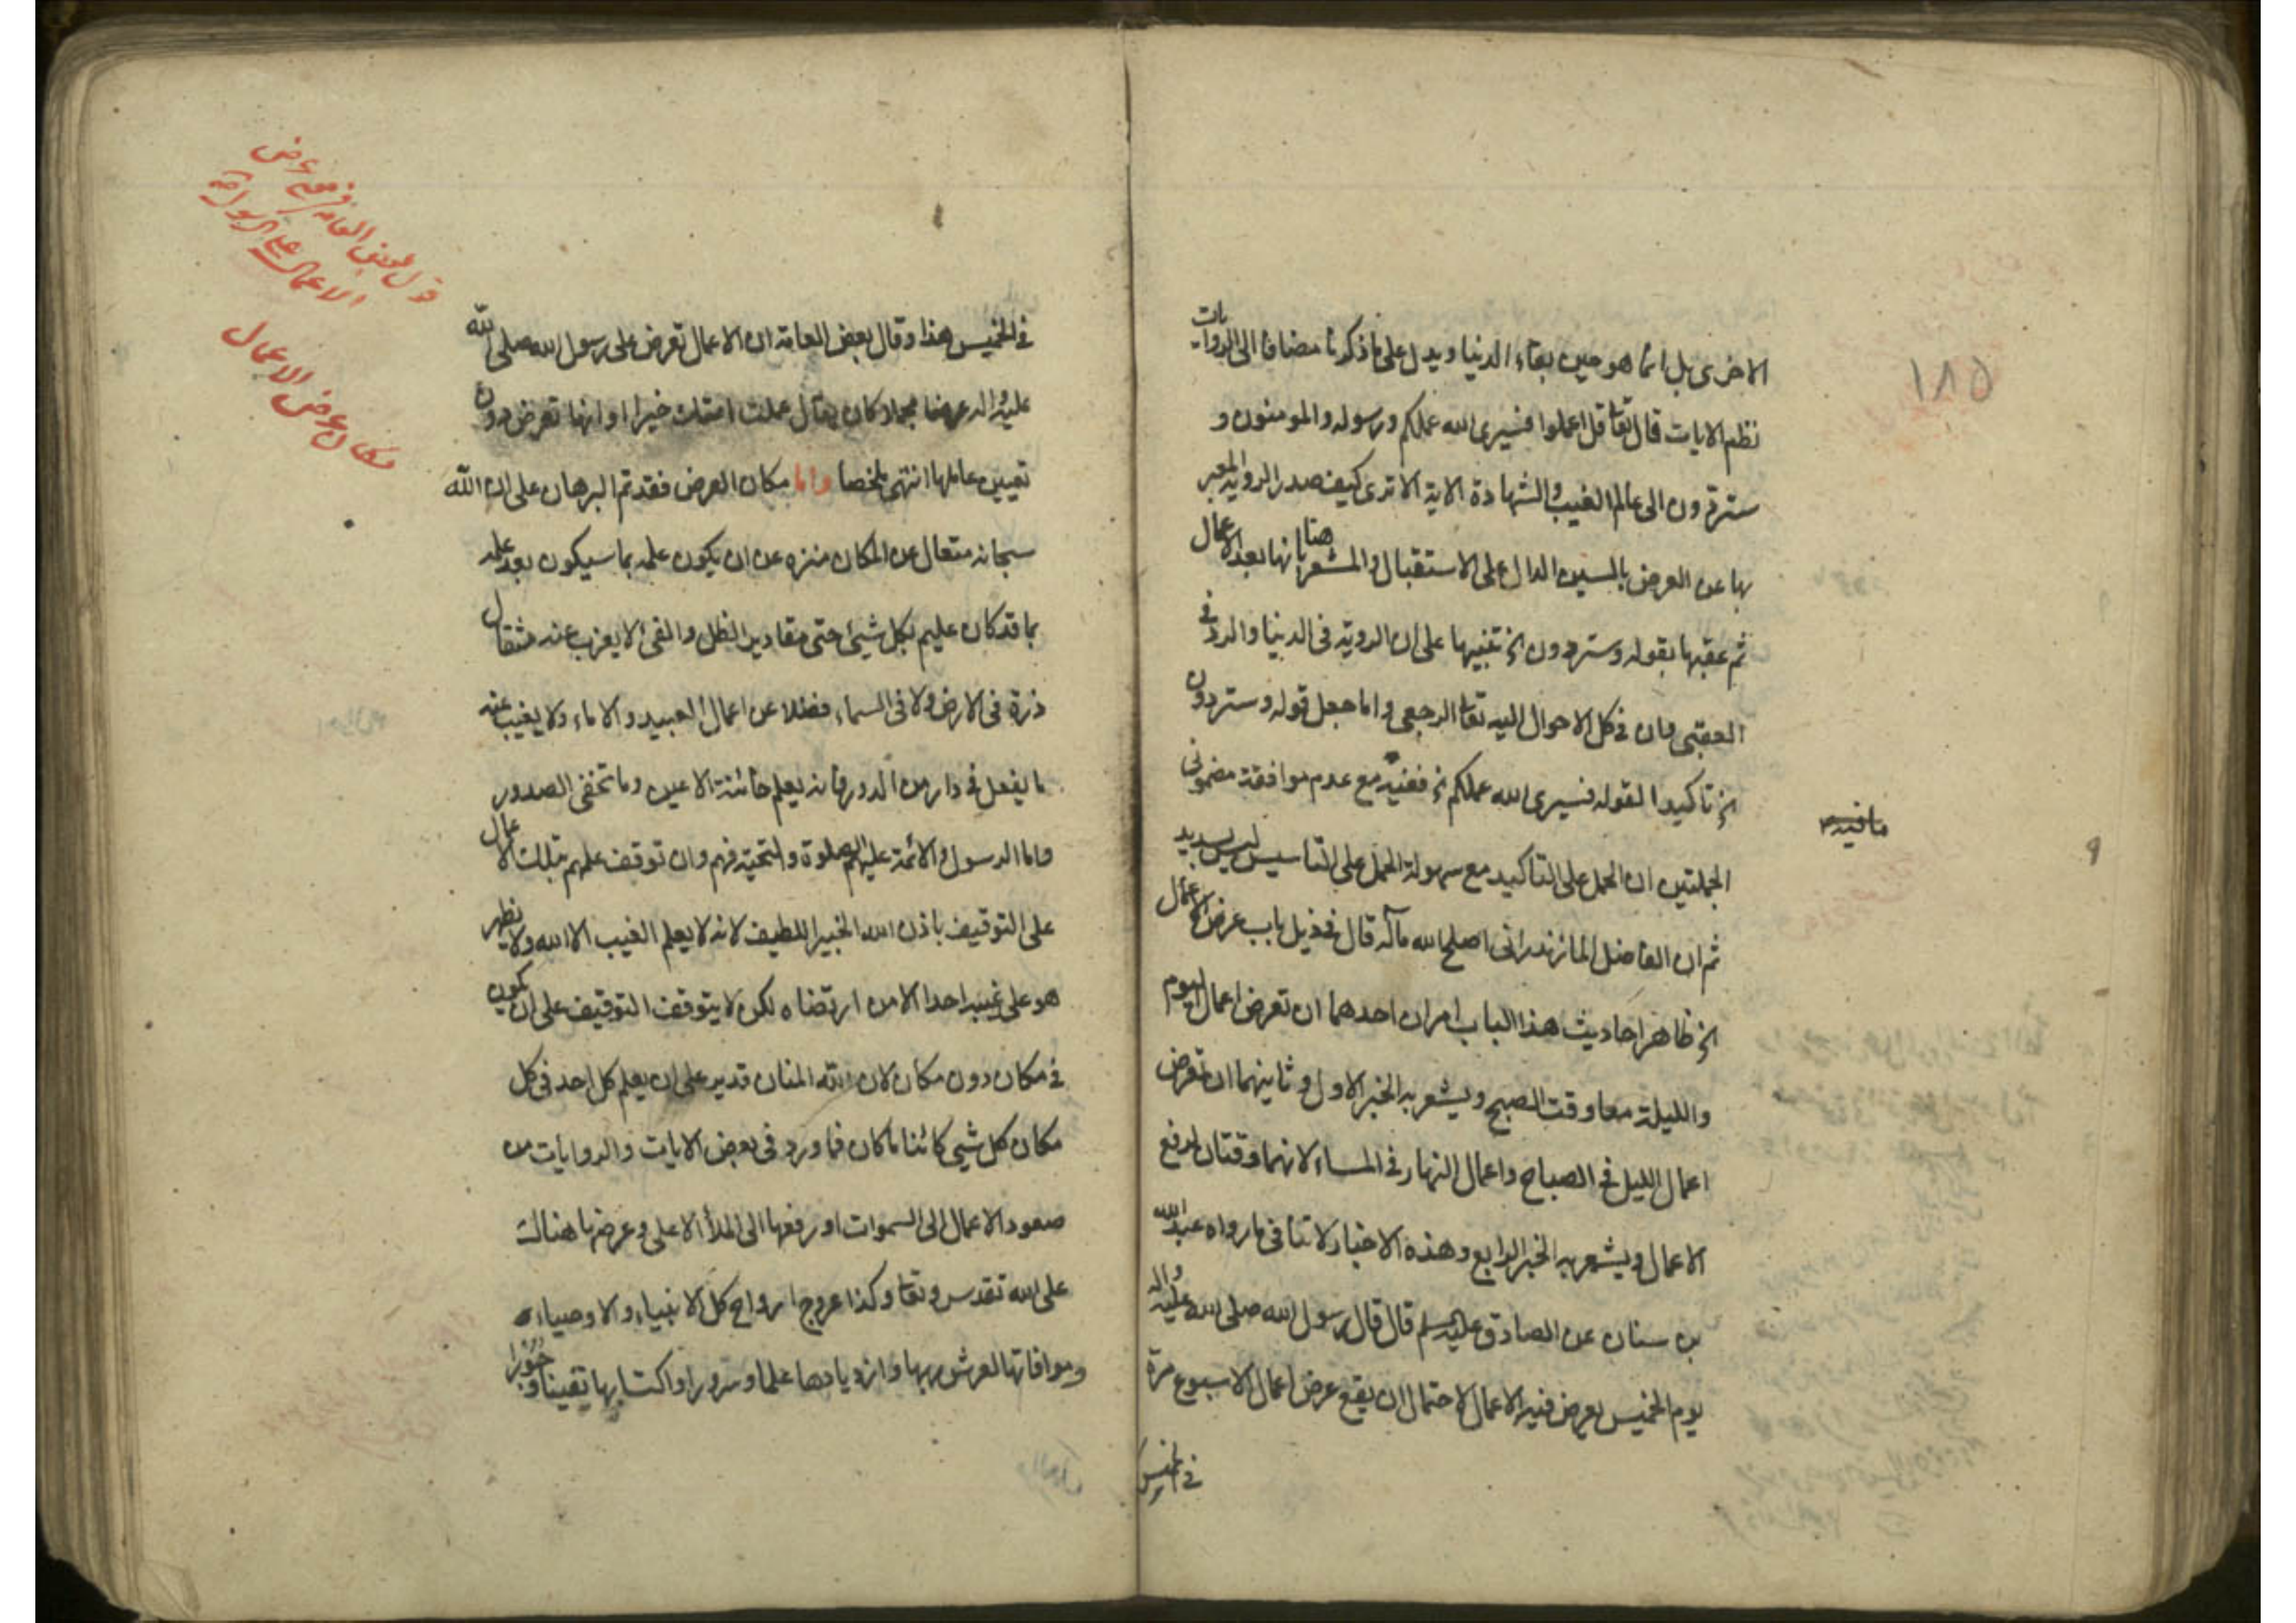 الاخرى بل انما هو حين بقاء الدنيا ويدل على ما ذكرنا مضافا الى الروايات
نظم الايات قال تعا قل اعملوا فسيرى الله عملكم ورسوله والمومنون و
ستردون الى عالم الغيب والشهادة الاية الا ترى كيف صدر الروية المعبر
بها عن العرض بالسين الدال على الاستقبال والمشعر هنا بانها بعد الاعمال
ثم عقبها بقوله وستردون الخ تنبيها على ان الروية فى الدنيا والرد فى
العقبى وان فى كل الاحوال اليه تعا الرجعى واما جعل قوله وستردون
الخ تاكيدا لقوله فسيرى الله عملكم الخ ففيه مع عدم موافقة مضمونى
الجملتين ان الحمل على التاكيد مع سهولة الحمل على التاسيس ليس بسديد
ثم ان الفاضل المازندرانى اصلح الله مآله قال فى ذيل باب عرض الاعمال
الخ ظاهر احاديث هذا الباب امران احدهما ان تعرض اعمال اليوم
والليلة معا وقت الصبح ويشعر به الخبر الاول وثانيهما ان تعرض
اعمال الليل فى الصباح واعمال النهار فى المساء لانهما وقتان لرفع
الاعمال ويشعر به الخبر الرابع وهذه الاخبار لا تنافى ما رواه عبد الله
بن سنان عن الصادق عليه السلم قال قال رسول الله صلى الله عليه واله
يوم الخميس يعرض فيه الاعمال لاحتمال ان يقع عرض اعمال الاسبوع مرة
فى الخميس
١٨٥
ما فيه
فى الخميس هذا وقال بعض العامة ان الاعمال تعرض على رسول الله صلى الله
عليه واله عرضا مجملا كان يقال عملت امتك خيرا او انها تعرض دون
تعيين عاملها انتهى ملخصا واما مكان العرض فقد تم البرهان على ان الله
سبحانه متعال عن المكان منزه عن ان يكون علمه بما سيكون بعد علمه
بما قد كان عليم بكل شيئ حتى مقادير الظل والفئ لا يعزب عنه مثقال
ذرة فى الارض ولا فى السماء فضلا عن اعمال العبيد والاماء ولا يغيب عنه
ما يفعل فى دار من الدور فانه يعلم خائنة الاعين وما تخفى الصدور
واما الرسول والائمة عليهم الصلوة والتحية فهم وان توقف علمهم بتلك الاعمال
على التوقيف باذن الله الخبير اللطيف لانه لا يعلم الغيب الا الله ولا يظهر
هو على غيبه احدا الا من ارتضاه لكن لا يتوقف التوقيف على ان يكون
فى مكان دون مكان لان الله المنان قدير على ان يعلم كل احد فى كل
مكان كل شيئ كائنا ما كان فما ورد فى بعض الايات والروايات من
صعود الاعمال الى السموات او رفعها الى الملأ الاعلى وعرضها هنالك
على الله تقدس وتعا وكذا عروج ارواح كل الانبياء والاوصياء
وموافاتها لعرش ربها وازديادها علما وسرورا واكتسابها يقينا وحبورا
قول بعض العامة فى معنى عرض
الاعمال على الرسول
مكان عرض الاعمال